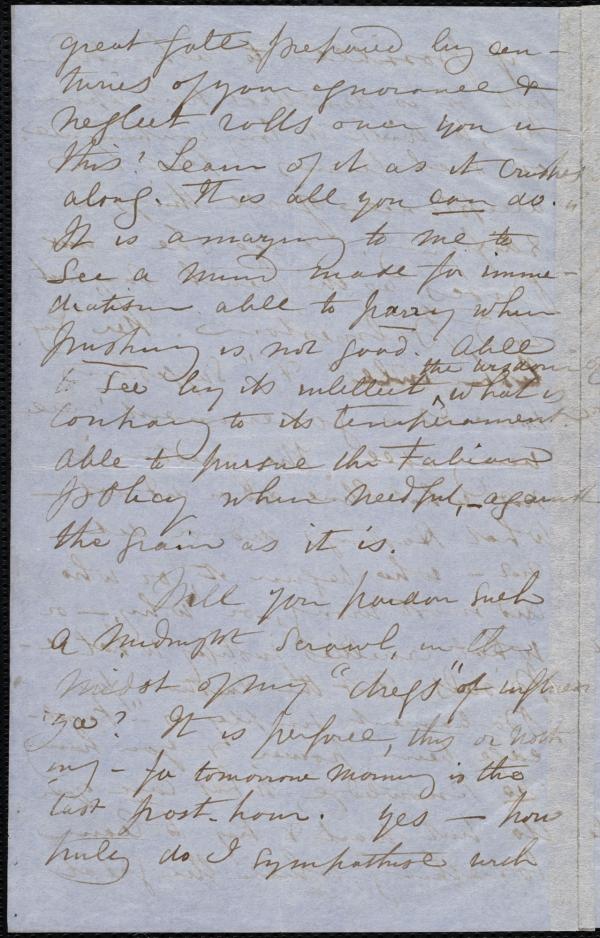 great fate prepared by cen-
turies of your ignorance &
neglect rolls over you in
this! Learn of it as it crushes
along. It is all you can do.
It is amazing to me to
see a mind made for imme-
diatism able to parry when
pushing is not good. Able
the wisdom
to see by its intellect, ^ what is
contrary to its temperament.
Able to pursue the Fabian
policy when needful, - against
the grain as it is.
Will you pardon such
a midnight scrawl, in the
midst of my "dregs" of influen
za? It is perforce, this or noth
ing - for tomorrow morning is the
last post-hour. Yes - how
truly do I sympathise with